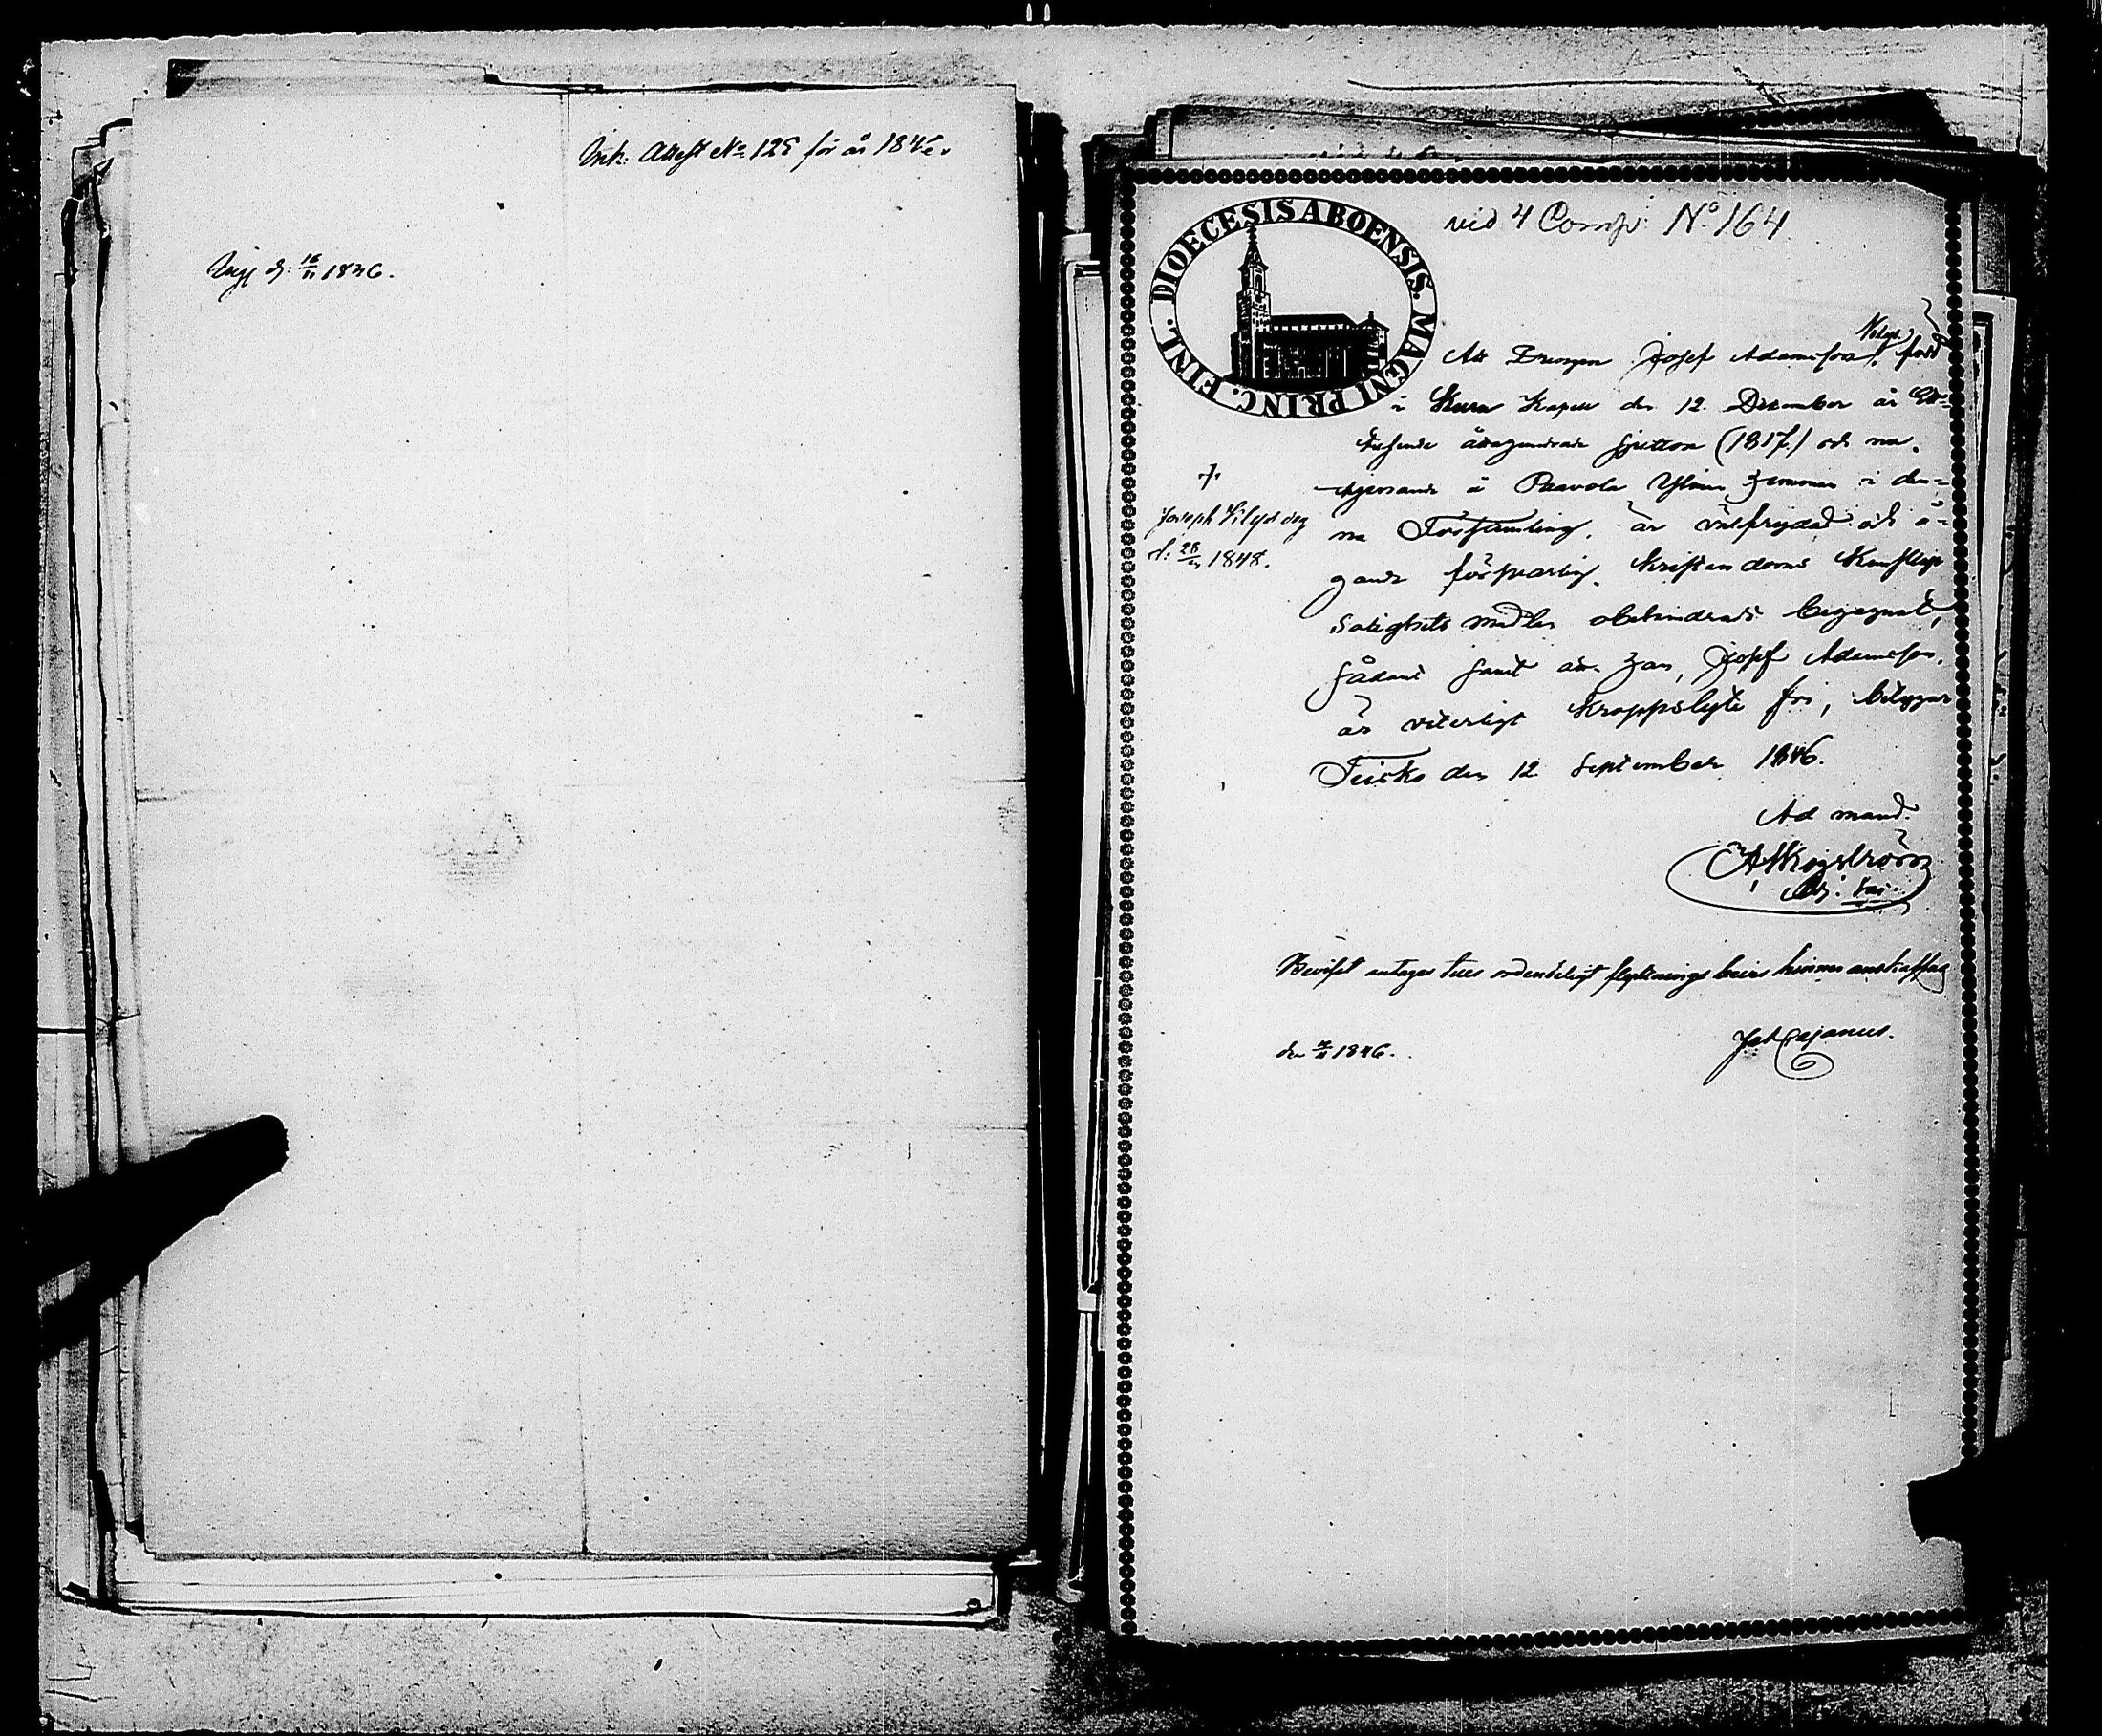 Ink: Attest No 125 för år 1846.
Upp d: 18/11 1846.
vid 4 Comp: No. 164
DIOECESIS ABOENSIS. MAGNI PRINC. FINL.
Att Drengen Josef Adamsson, född
i Kuru Kapell den 12. December år Et-
tusende åttahundrade sjutton (1817) och nu
tjenande å Paavola Ylinen hemman i den-
na Församling, är välfrejdad och ä-
gande försvarlig Kristendoms Kunskap
Salighets medlen obehindradt begagnat,
sådant samt att han, Josef Adamsson,
är veterligt Kroppslyte fri, betygar
Teisko den 12 September 1846.
Ad mand.
†
Joseph Kilpi dog
d: 28/ 1848.
Beviset antages tills ordenteligt flyttnings bevis hinner anskaffas
den 1846.
Jak Cajanus.